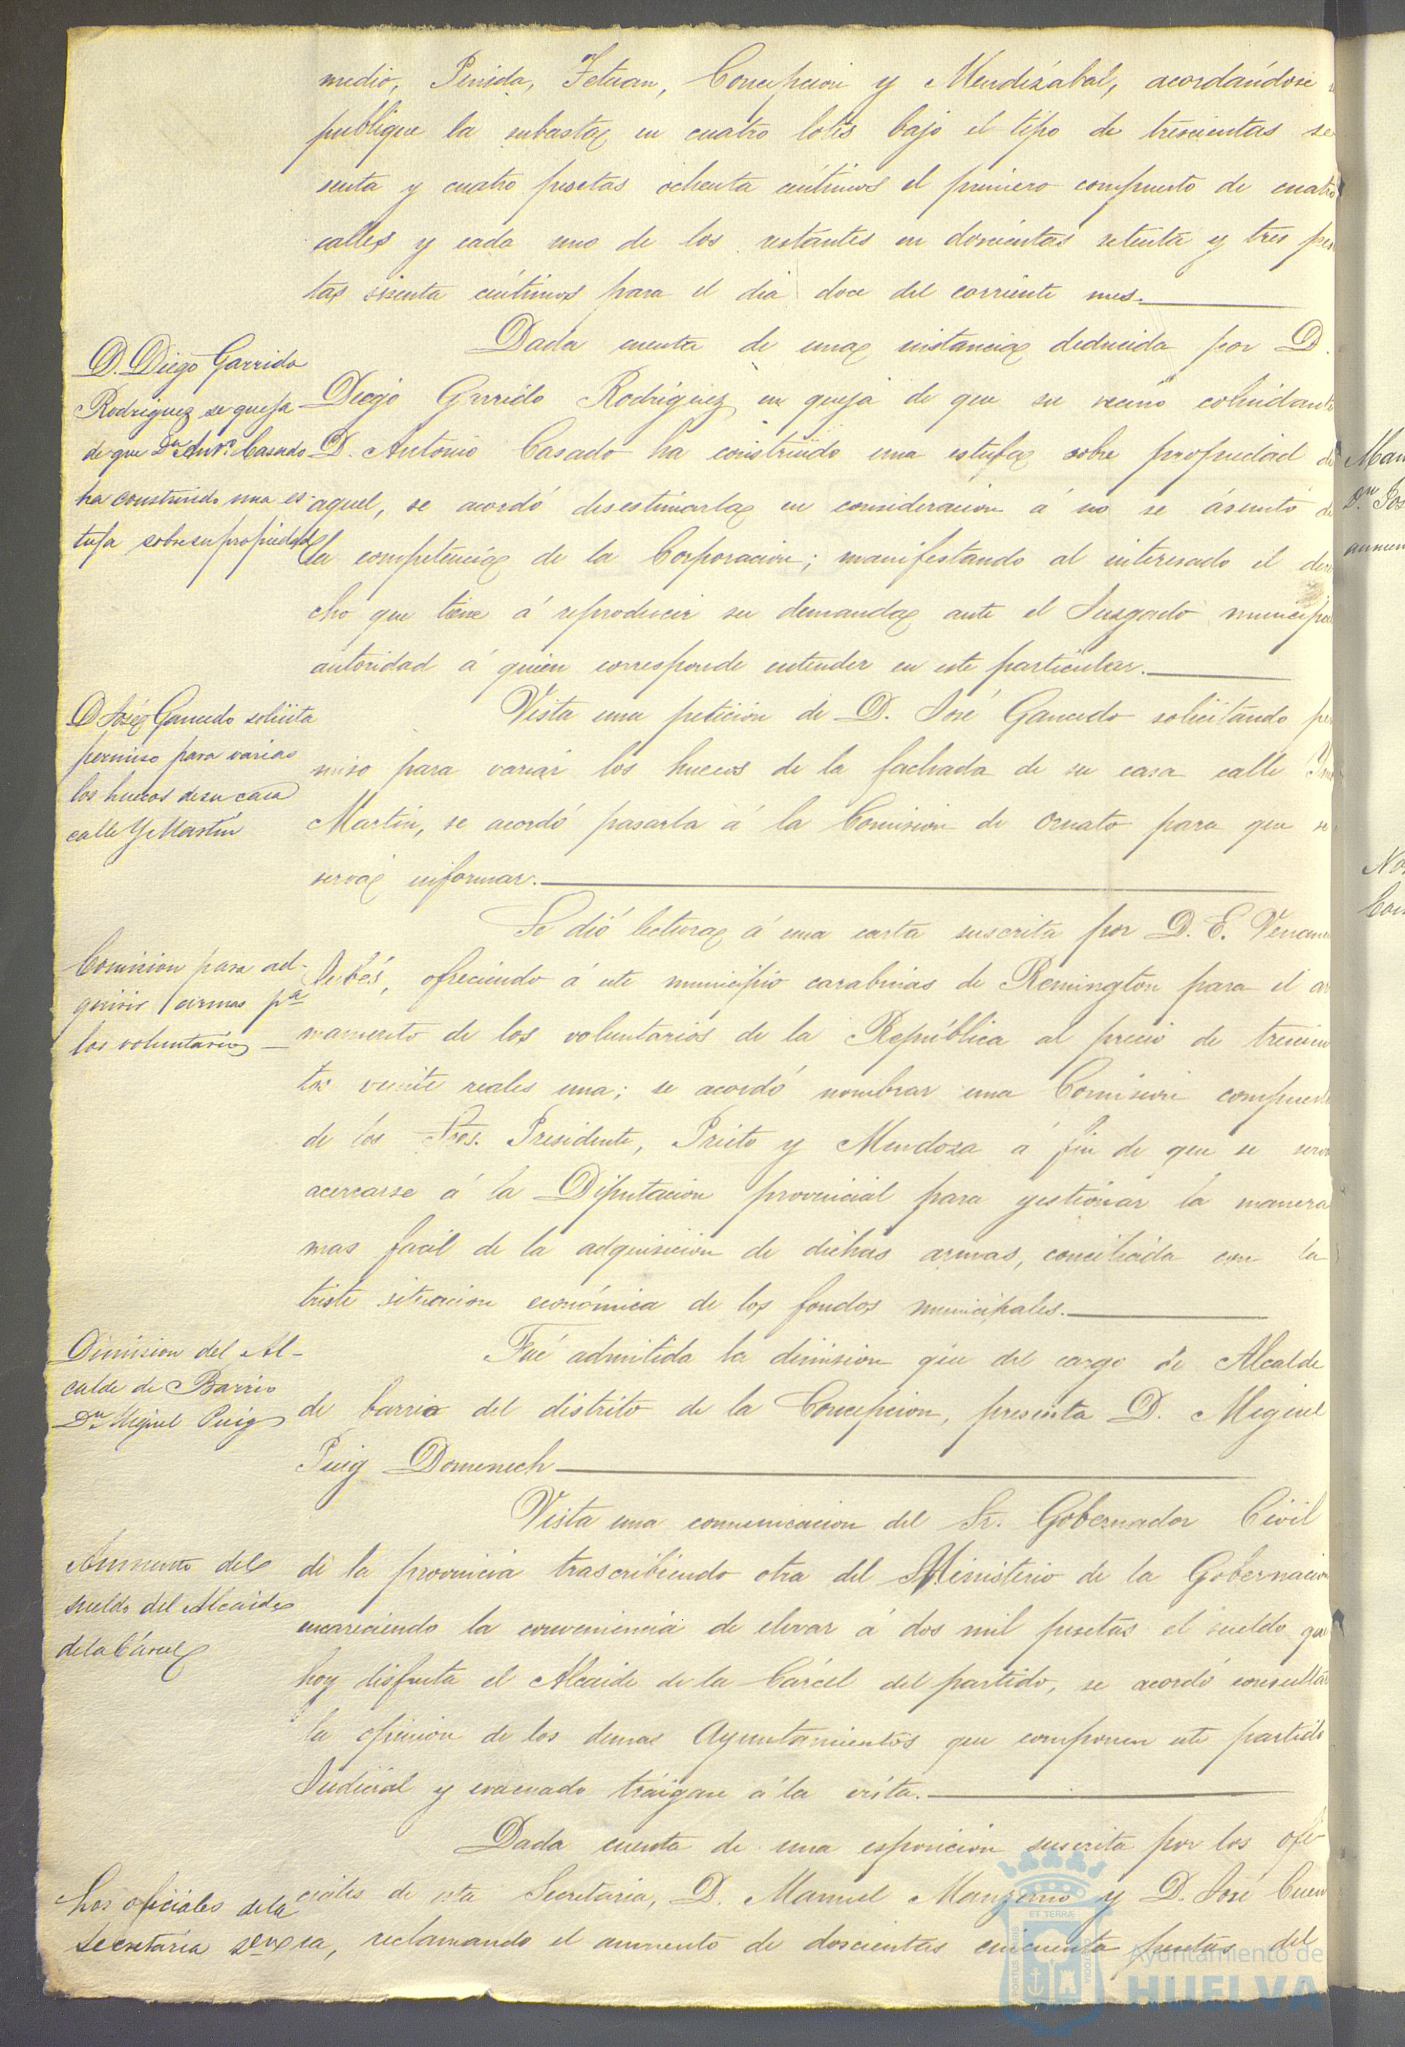 medio, Pineda, Tetuan, Concepcion y Mendizábal, acordándose
publique la subasta en cuatro lotes bajo el tipo de trescientas se
senta y cuatro pesetas ochenta céntimos el primero compuesto de cuatro
calles y cada uno de los restantes en doscientas setenta y tres pese
tas sesenta céntimos para el dia doce del corriente mes.
D. Diego Garrido
Rodriguez se queja
de que Dn Anto. Casado
ha construido una es-
tufa sobre su propiedad
Dada cuenta de una instancia deducida por D.
Diego Garrido Rodriguez en queja de que su vecino colindante
D. Antonio Casado ha construido una estufa sobre propiedad de
aquel, se acordó desestimarla en consideracion á no se ásunto de
la competencia de la Corporacion; manifestando al interesado el dere
cho que tiene á reproducir su demanda ante el Juzgado municipal
autoridad á quien corresponde entender en este particular.
D José Gancedo solicita
permiso para variar
los huecos de su casa
calle Y. Martin
Vista una peticion de D. José Gancedo solicitando per
miso para variar los huecos de la fachada de su casa calle
Martin, se acordó pasarla á la Comision de Ornato para que se
serva informar.
Comision para ad-
quirir armas pa
los voluntarios
Se dió lectura á una carta suscrita por D. E.
ofreciendo á este municipio carabinas de Remington para el ar
mamento de los voluntarios de la República al precio de trescien
tos veinte reales una; se acordó nombrar una Comision compuesta
de los Sres. Presidente, Prieto y Mendoza á fin de que se sirvan
acercarse á la Diputacion provincial para gestionar la manera
mas facil de la adquisicion de dichas armas, conciliada con la
triste situacion económica de los fondos municipales.
Dimision del Al-
calde de Barrio
Dn Miguel Puig
Fué admitida la dimision que del cargo de Alcalde
de barrio del distrito de la Concepcion, presenta D. Miguel
Puig Domenech
Aumento del
sueldo del Alcaide
de la Cárcel
Vista una comunicacion del Sr. Gobernador Civil
de la provincia trascribiendo otra del Ministerio de la Gobernacion
encareciendo la conveniencia de elevar á dos mil pesetas el sueldo que
hoy disfruta el Alcaide de la Cárcel del partido, se acordó consultar
la opinion de los demas Ayuntamientos que componen este partido
Judicial y evacuado tráigase á la vista.
Los oficiales de la
Secretaría
Dada cuenta de una esposicion suscrita por los ofi-
ciales de esta Secretaria, D. Manuel Manzano y D. José Cuen
ca, reclamando el aumento de doscientas cincuenta pesetas del
Ayuntamiento de
HUELVA